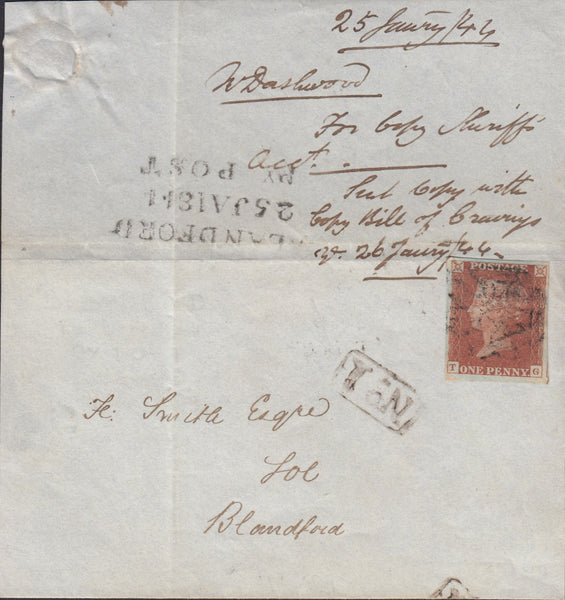 25 Janry/44
W Dashwood
For Copy Sheriffs
Acct.
Sent Copy with
Copy Bill of Cravings
26 Janry/44
BLANDFORD
25JA1844
BY POST
POSTAGE
T G
ONE PENNY
No. 1
Smith Esqre
Sol
Blandford